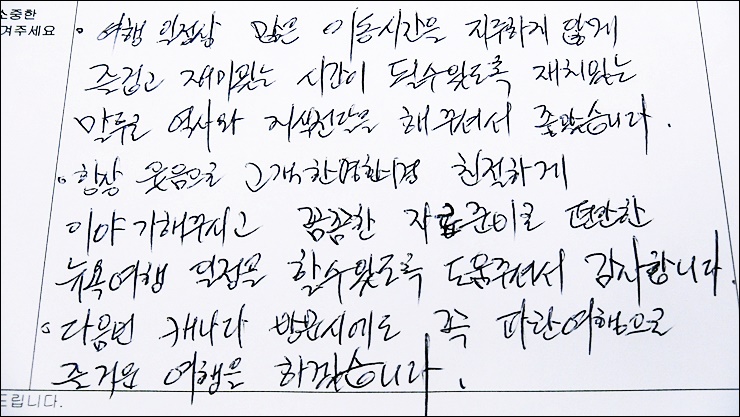 소중한
겨주세요
• 여행 일정상 많은 이동시간을 지루하지 않게
즐겁고 재미있는 시간이 될수있도록 재치있는
말투로 역사와 지식전달을 해주셔서 좋았습니다.
• 항상 웃음으로 고객한명한명 친절하게
이야기해주시고 꼼꼼한 자료준비로 편안한
뉴욕여행 일정을 할수있도록 도움주셔서 감사합니다.
• 다음번 캐나다 방문시에도 꼭 파란여행으로
즐거운 여행을 하겠습니다.
드립니다.